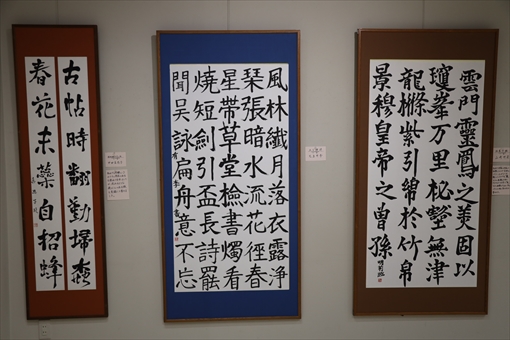 古帖時翻勤掃
春花未蘂自招蜂
風林纖月落衣露淨
琴張暗水流花徑春
星帶草堂檢書燭看
燒短劍引盃長詩罷
聞吳詠扁舟意不忘
雲門靈鳳之美固以
瓊峯万里秘壑無津
龍樤紫引綿於竹帛
景穆皇帝之曾孫